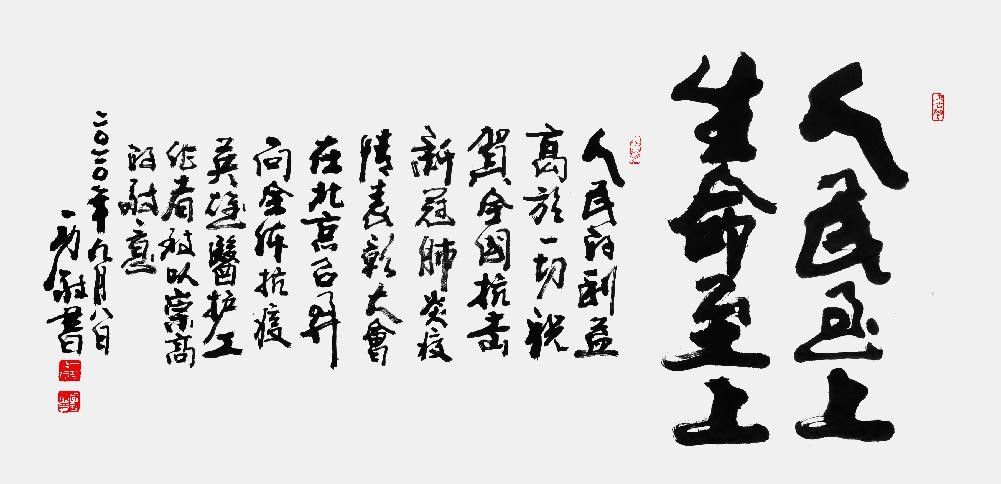 人民至上
生命至上
人民的利益
高於一切祝
賀全國抗击
新冠肺炎疫
情表彰大會
在北京召開
向全体抗疫
英雄醫护工
作者致以崇高
的敬意
二〇二〇年九月八日
敬書